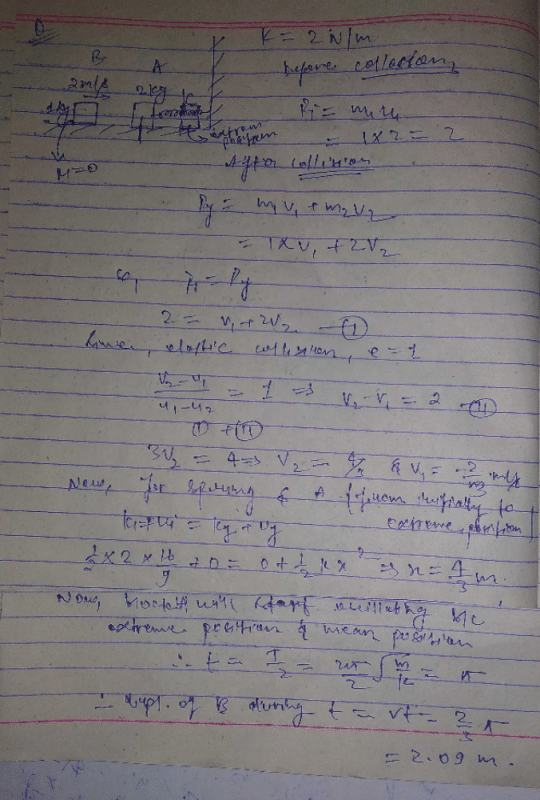 Q
K = 2 N/m
B
A
before collision,
2m/s
2kg
1kg
extreme position
Pi = m1u1
= 1x2 = 2
M=0
After collision
Pf = m1v1 + m2v2
= 1xv1 + 2v2
so, Pi = Pf
2 = v1 + 2v2 — (I)
Since, elastic collision, e = 1
v2-v1 / u1-u2 = 1 ⇒ v2 - v1 = 2 — (II)
(I) + (II)
3v2 = 4 ⇒ v2 = 4/3 & v1 = -2/3 m/s
Now, for spring & A from initially to
extreme position
ki + ui = kf + uf
1/2 x 2 x 16/9 + 0 = 0 + 1/2 k x² ⇒ x = 4/3 m.
Now, block will start oscillating b/c
extreme position & mean position
∴ t = T/2 = 2π/2 √m/k = π
∴ displ. of B during t = vt = 2/3 π
= 2.09 m.